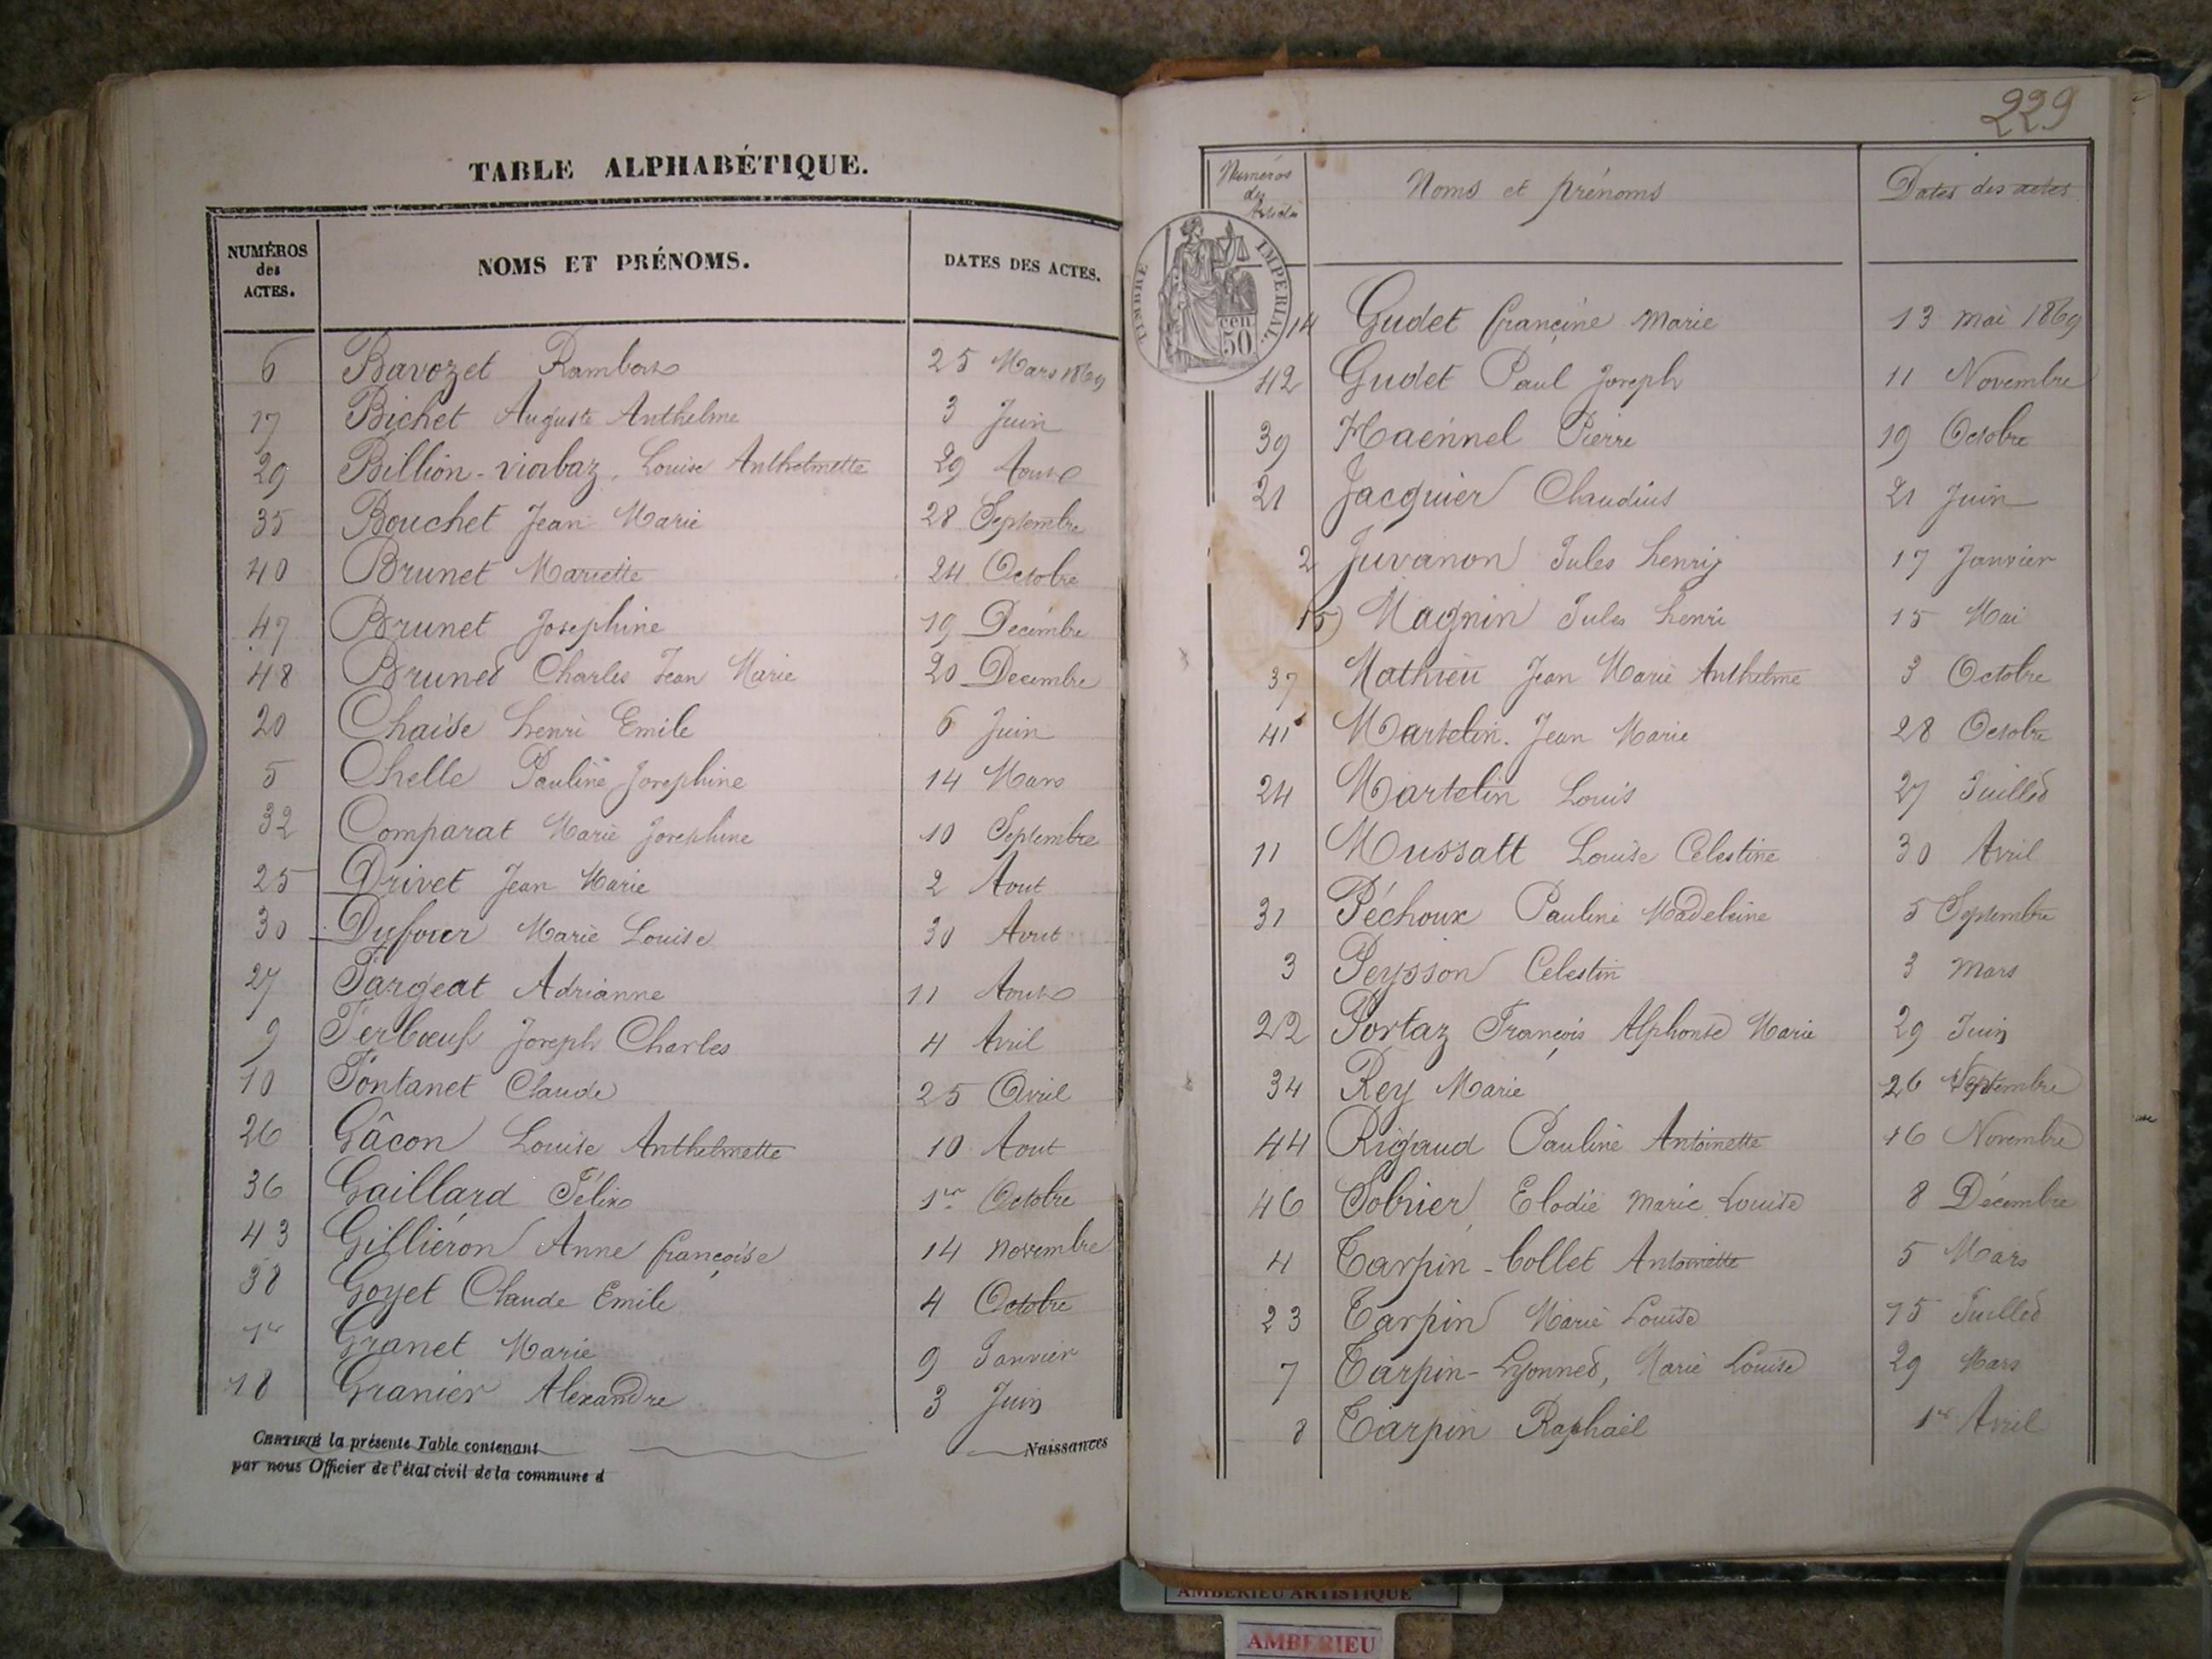 TABLE ALPHABÉTIQUE.
NUMÉROS des ACTES. NOMS ET PRÉNOMS. DATES DES ACTES.
6 Bavozet Rambert 25 Mars 1869
17 Bichet Auguste Anthelme 3 Juin
29 Billion-viorbaz, Louise Anthelmette 29 Aout
35 Bouchet Jean Marie 28 Septembre
40 Brunet Mariette 24 Octobre
47 Brunet Josephine 19 Decembre
48 Brunet Charles Jean Marie 20 Decembre
20 Chaise henri Emile 6 Juin
5 Chelle Pauline Josephine 14 Mars
32 Comparat Marie Josephine 10 Septembre
25 Drivet Jean Marie 2 Aout
30 Dufour Marie Louise 30 Aout
27 Fargeat Adrianne 11 Aout
9 Ferboeuf Joseph Charles 4 Avril
10 Fontanet Claude 25 Avril
26 Gâcon Louise Anthelmette 10 Aout
36 Gaillard Félix 1er Octobre
43 Gilliéron Anne françoise 14 Novembre
38 Goyet Claude Emile 4 Octobre
1er Granet Marie 9 Janvier
18 Granier Alexandre 3 Juin
CERTIFIÉ la présente Table contenant Naissances
par nous Officier de l'état civil de la commune d
229
Numéros des Noms et prénoms Dates des actes
TIMBRE IMPERIAL.
cen 50
14 Gudet françine Marie 13 mai 1869
42 Gudet Paul Joseph 11 Novembre
39 Haënnel Pierre 19 Octobre
21 Jacquier Claudius 21 Juin
2 Juvanon Jules henry 17 Janvier
15 Magnin Jules henri 15 Mai
37 Mathieu Jean Marie Anthelme 3 Octobre
41 Martelin. Jean Marie 28 Octobre
24 Martelin Louis 27 Juillet
11 Mussatt Louise Celestine 30 Avril
31 Péchoux Pauline Madeleine 5 Septembre
3 Peysson Celestin 3 Mars
22 Portaz François Alphonse Marie 29 Juin
34 Rey Marie 26 Septembre
44 Rigaud Pauline Antoinette 16 Novembre
46 Sobrier Elodie Marie Louise 8 Décembre
4 Tarpin-Collet Antoinette 5 Mars
23 Tarpin Marie Louise 15 Juillet
7 Tarpin-Lyonnet, Marie Louise 29 Mars
8 Tarpin Raphaël 1er Avril
AMBERIEU ARTISTIQUE
AMBERIEU